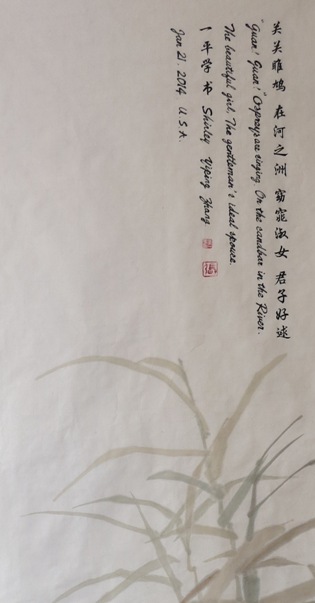 关关雎鸠 在河之洲 窈窕淑女 君子好逑
"Guan! Guan!" Ospreys are singing, On the sandbar in the River.
The beautiful girl, The gentleman's ideal spouse.
一平 Shirley Yiping Zhang
Jan 21. 2014 U.S.A.